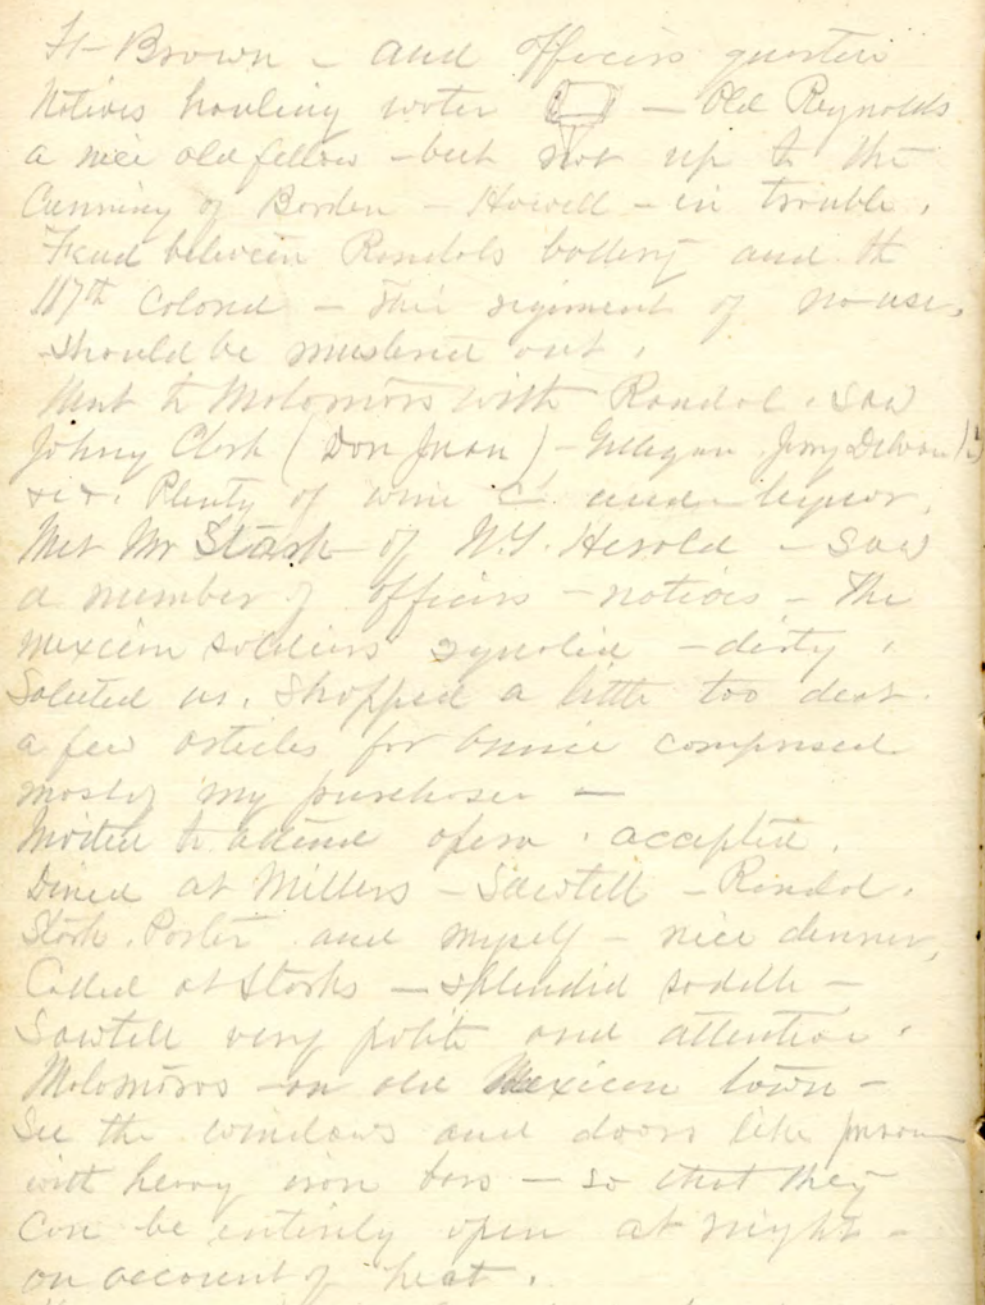 Ft Brown - and Officers quarters
Natives hauling water - Old Reynolds
a nice old fellow - but not up to the
Cunning of Borden - Howell - in trouble.
Feud between Randols battery and the
117th Colored - This regiment of no use,
should be mustered out.
Went to Matamoros with Randol. Saw
Johny Clark (Don Juan) - Gilligan Jerry
&c &c. Plenty of wine and liquor.
Met Mr Stark of N.Y. Herald - Saw
a number of officers - natives - The
mexican soldiers squalid - dirty.
Saluted us. Shopped a little too dear.
a few articles for Annie comprised
mostly my purchases -
Invited to attend opera. accepted.
Dined at Millers - Sawtell - Randol.
Stark. Porter and myself - nice dinner,
Called at Starks - splendid saddle -
Sawtell very polite and attentive.
Matamoros - an old Mexican town -
See the windows and doors like prison
with heavy iron bars - so that they
Can be entirely open at night -
on account of heat.